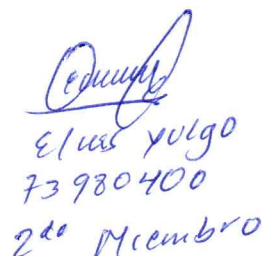 Yulgo
73980400
2do Miembro